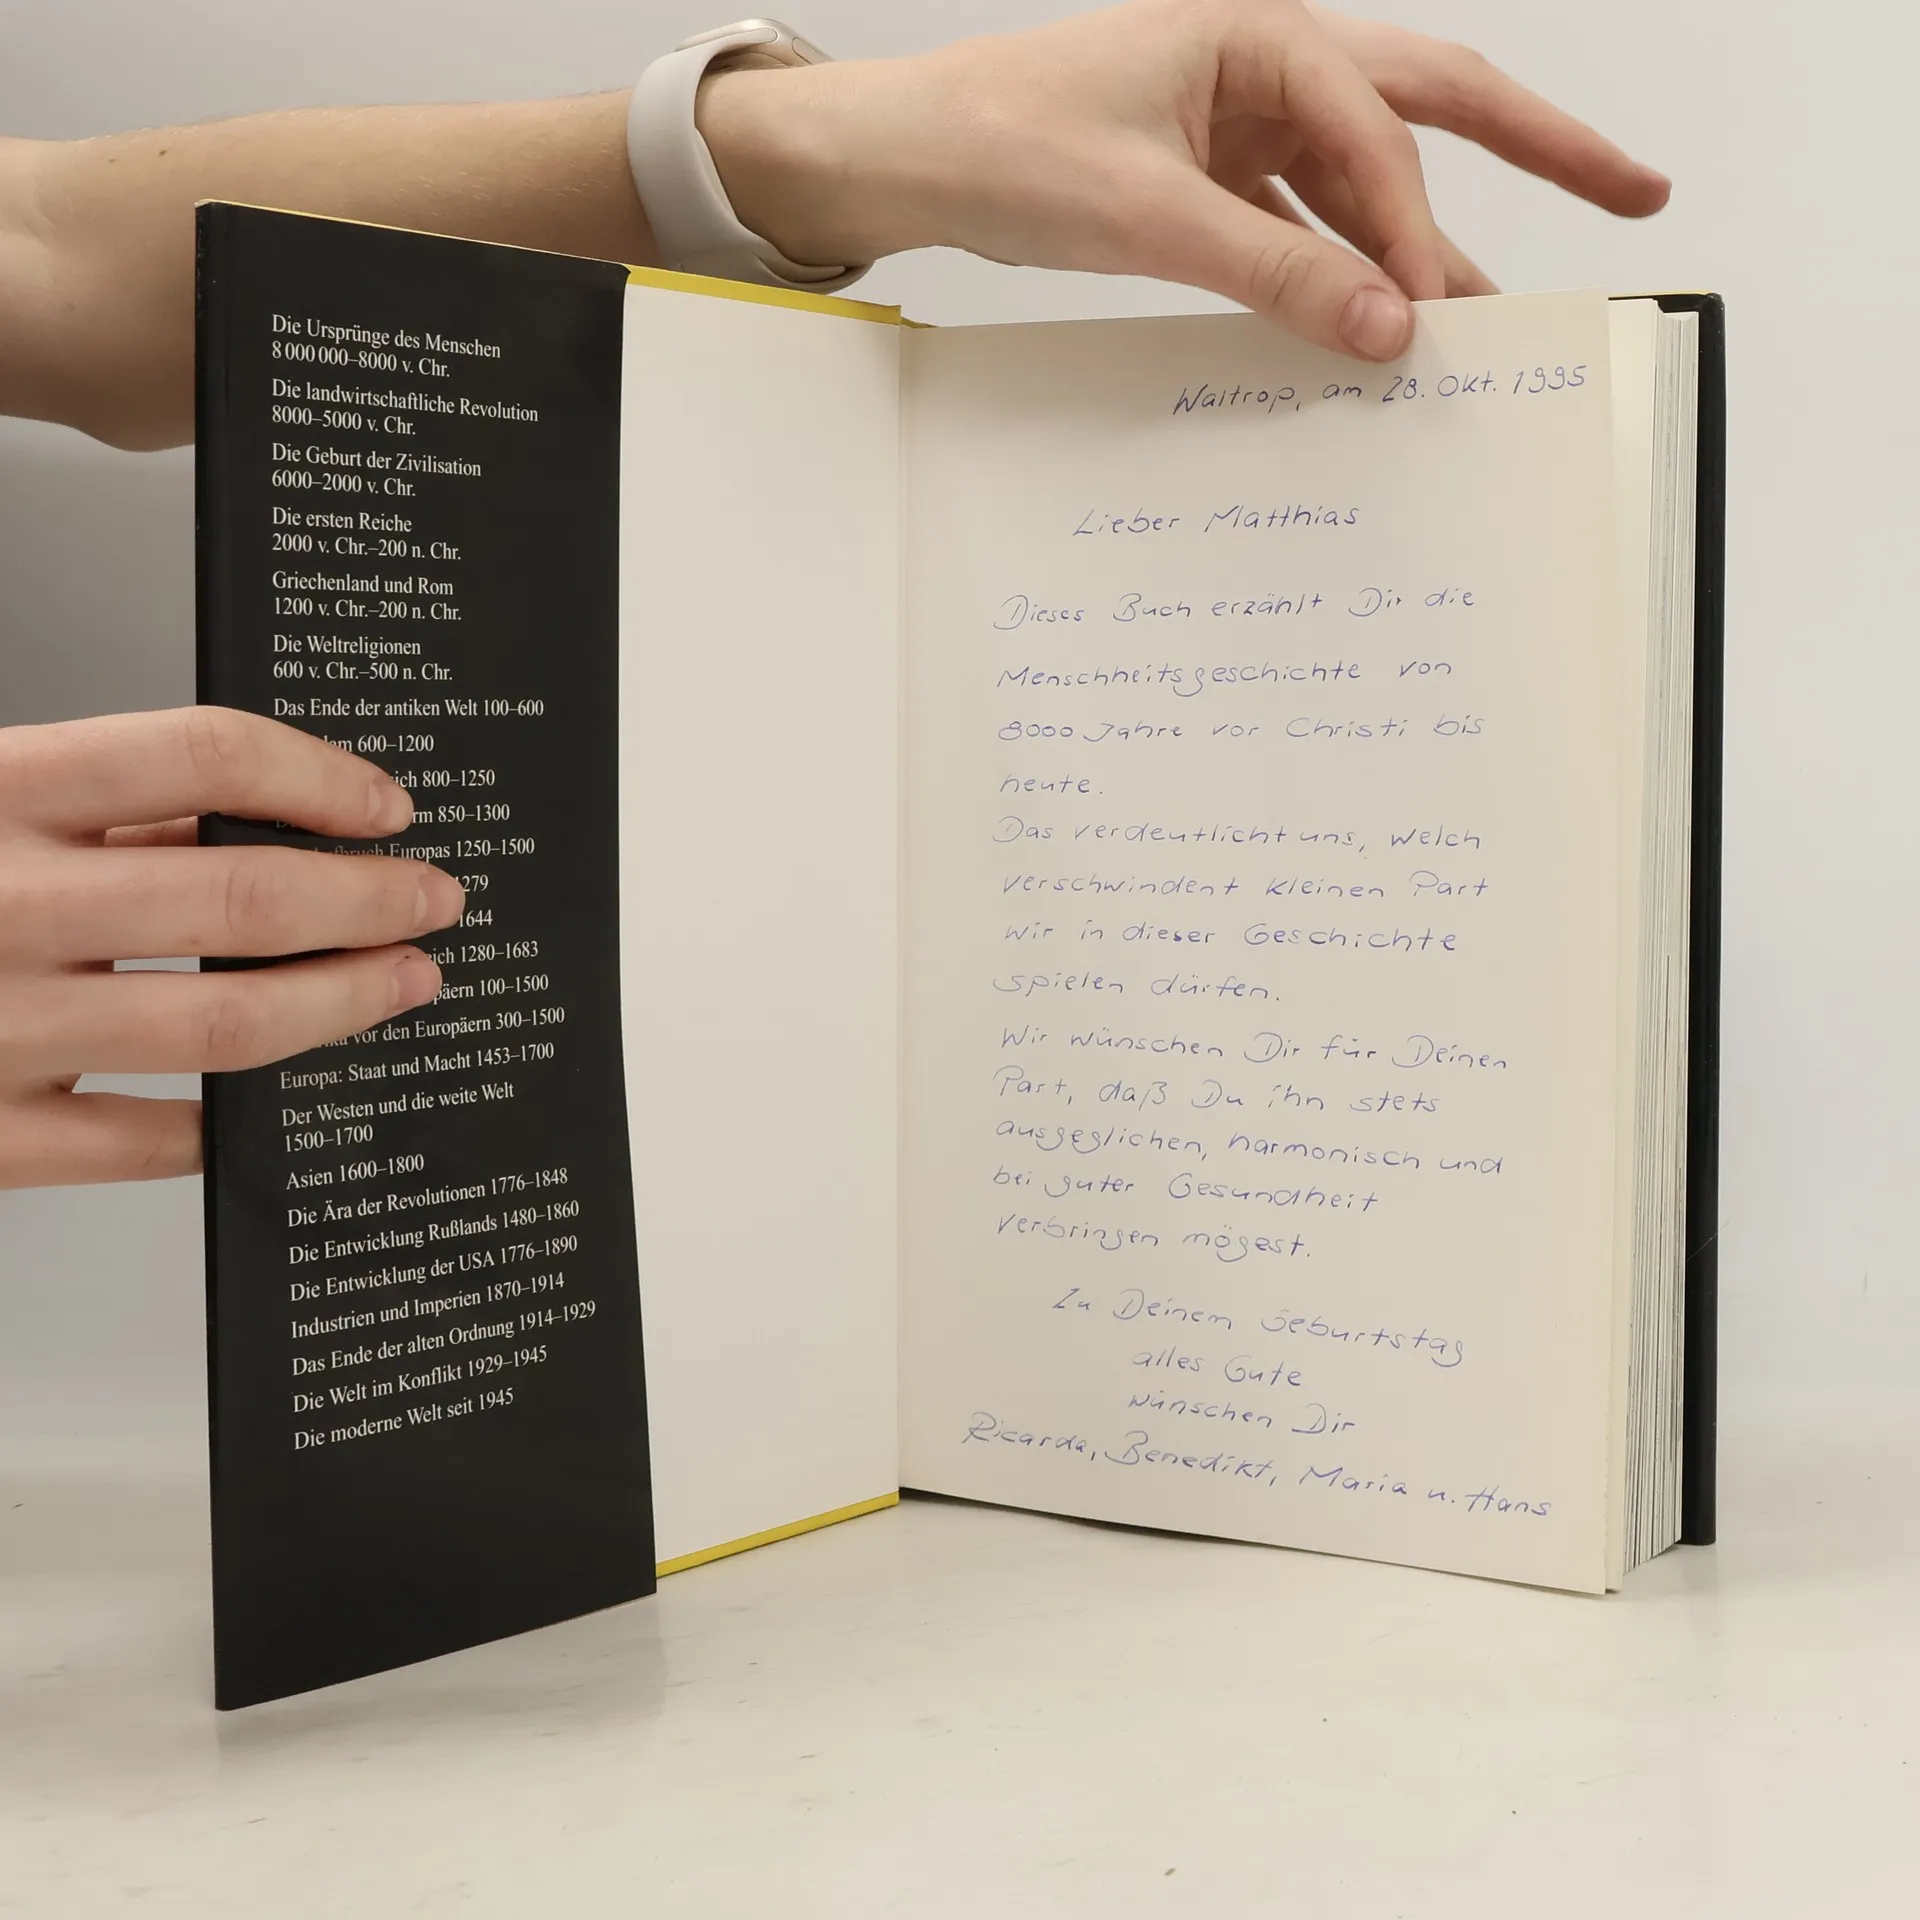 Die Ursprünge des Menschen
8 000 000–8000 v. Chr.
Die landwirtschaftliche Revolution
8000–5000 v. Chr.
Die Geburt der Zivilisation
6000–2000 v. Chr.
Die ersten Reiche
2000 v. Chr.–200 n. Chr.
Griechenland und Rom
1200 v. Chr.–200 n. Chr.
Die Weltreligionen
600 v. Chr.–500 n. Chr.
Das Ende der antiken Welt 100–600
600–1200
800–1250
850–1300
Europas 1250–1500
1279
1644
1280–1683
100–1500
vor den Europäern 300–1500
Europa: Staat und Macht 1453–1700
Der Westen und die weite Welt
1500–1700
Asien 1600–1800
Die Ära der Revolutionen 1776–1848
Die Entwicklung Rußlands 1480–1860
Die Entwicklung der USA 1776–1890
Industrien und Imperien 1870–1914
Das Ende der alten Ordnung 1914–1929
Die Welt im Konflikt 1929–1945
Die moderne Welt seit 1945
Waltrop, am 28. Okt. 1995
Lieber Matthias
Dieses Buch erzählt Dir die
Menschheitsgeschichte von
8000 Jahre vor Christi bis
heute.
Das verdeutlicht uns, welch
verschwindent kleinen Part
wir in dieser Geschichte
spielen dürfen.
Wir wünschen Dir für Deinen
Part, daß Du ihn stets
ausgeglichen, harmonisch und
bei guter Gesundheit
verbringen mögest.
Zu Deinem Geburtstag
alles Gute
wünschen Dir
Ricarda, Benedikt, Maria u. Hans